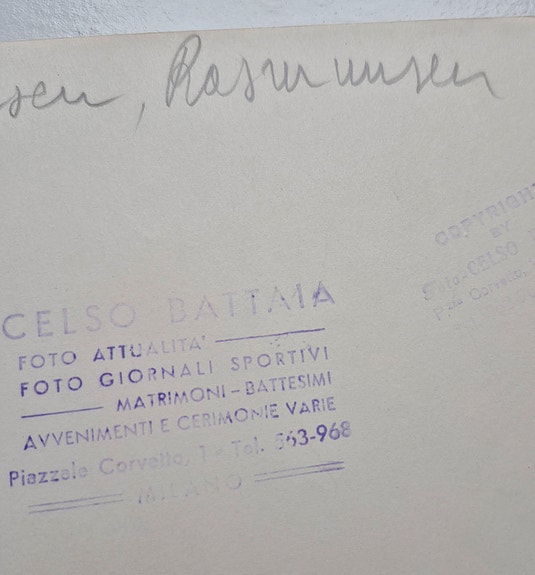 sen, Rasmussen
CELSO BATTAIA
FOTO ATTUALITA'
FOTO GIORNALI SPORTIVI
MATRIMONI - BATTESIMI
AVVENIMENTI E CERIMONIE VARIE
Piazzale Corvetto, 1 - Tel. 563-968
MILANO
COPYRIGH
BY
Foto CELSO
P.zza Corvetto,